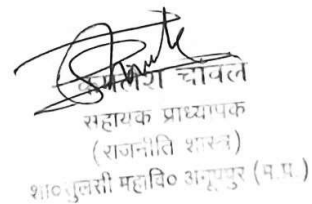 कमलेश चाँवले
सहायक प्राध्यापक
(राजनीति शास्त्र)
शा०तुलसी महावि० अनूपपुर (म.प्र.)